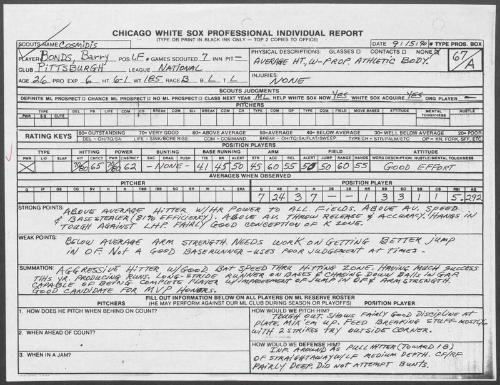 CHICAGO WHITE SOX PROFESSIONAL INDIVIDUAL REPORT
(TYPE OR PRINT IN BLACK INK ONLY – TOP 2 COPIES TO OFFICE)
SCOUTS NAME COSMIDIS
DATE
TYPE PROS. BOX
67/A
PLAYER BONDS, Barry POS LF # GAMES SCOUTED 7 INN PIT –
CLUB PITTSBURGH LEAGUE NATIONAL
AGE 26 PRO EXP. 6 HT. 6-1 WT 185 RACE B H L T L
PHYSICAL DESCRIPTIONS: GLASSES CONTACTS NONE
AVERAGE HT, W-PROP. ATHLETIC BODY.
INJURIES:
NONE
SCOUTS JUDGMENTS
DEFINITE ML PROSPECT CHANCE ML PROSPECT NO ML PROSPECT CLASS NEXT YEAR ML HELP WHITE SOX NOW YES WHITE SOX ACQUIRE YES ORG PLAYER –
PITCHERS
RATING KEYS
80–OUTSTANDING 70–VERY GOOD 60–ABOVE AVERAGE 50–AVERAGE 40–BELOW AVERAGE 30–WELL BELOW AVERAGE 20–POOR
POSITION PLAYERS
TYPE HITTING POWER BUNTING BASE RUNNING ARM FIELD ATTITUDE
65 62 –NONE– 41 45 50 45 60 55 50 50 60 55 GOOD EFFORT
AVERAGES WHEN OBSERVED
PITCHER POSITION PLAYERS
7 24 3 7 – – 1 3 3 1 5 .292
STRONG POINTS: ABOVE AVERAGE HITTER W/HR POWER TO ALL FIELDS. ABOVE AV. SPEED
& BASESTEALER (81% EFFICIENCY). ABOVE AV. THROW RELEASE & ACCURACY. HANGS IN
TOUGH AGAINST LHP. FAIRLY GOOD CONCEPTION OF K ZONE.
WEAK POINTS: BELOW AVERAGE ARM STRENGTH. NEEDS WORK ON GETTING BETTER JUMP
IN OF. NOT A GOOD BASERUNNER - USES POOR JUDGEMENT AT TIMES.
SUMMATION: AGGRESSIVE HITTER W/GOOD BAT SPEED THRU HITTING ZONE. HAVING MUCH SUCCESS
THIS YR. PRODUCING RUNS. LONG-STRIDE RUNNER ON BASES & CHASING DOWN BALLS IN GAP.
CAPABLE OF BEING COMPLETE PLAYER W/IMPROVEMENT OF JUMP IN OF & ARM STRENGTH.
GOOD CANDIDATE FOR MVP HONORS.
FILL OUT INFORMATION BELOW ON ALL PLAYERS ON ML RESERVE ROSTER
(HE MAY PERFORM AGAINST OUR ML CLUB DURING SEASON OR PLAYOFFS)
1. HOW DOES HE PITCH WHEN BEHIND ON COUNT?
2. WHEN AHEAD OF COUNT?
3. WHEN IN A JAM?
HOW WOULD WE PITCH HIM?
TOUGH OUT. SHOWS FAIRLY GOOD DISCIPLINE AT
PLATE. MIX 'EM UP. FEED BREAKING STUFF-MOSTLY-
WITH 2 STRIKES TRY OUTSIDE CORNER.
HOW WOULD WE DEFENSE HIM?
INF. AROUND AS PULL HITTER (TOWARD 1B)
OF STRAIGHTAWAY W/LF MEDIUM DEPTH. CF/RF
FAIRLY DEEP. DID NOT ATTEMPT BUNTS.